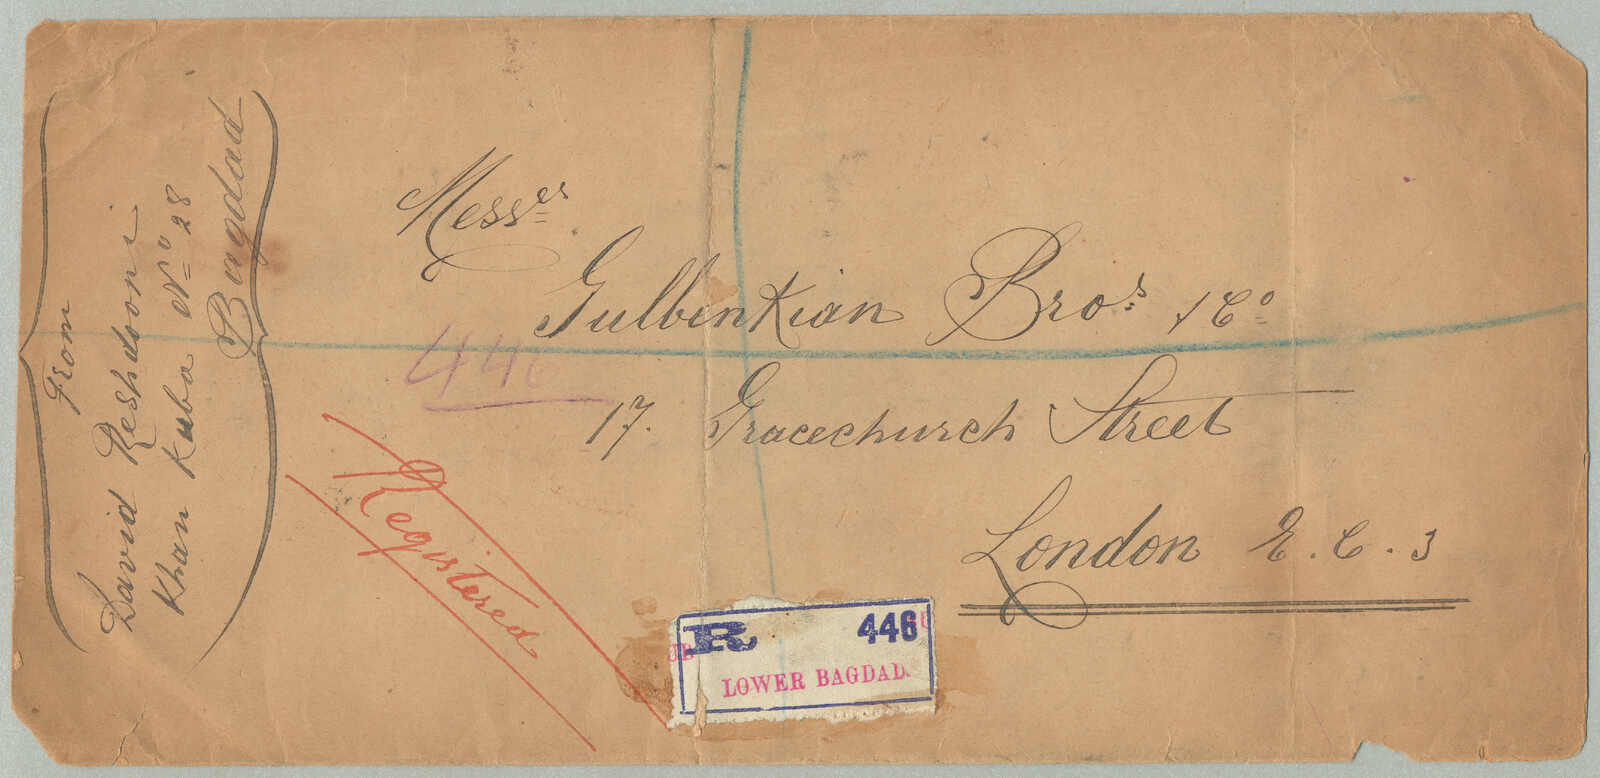 From
David Reshdooni
Khan Kuba Nº 28
Bagdad
Messrs
Gulbenkian Bros & Co
446
17. Gracechurch Street
London E.C.3
Registered
R 446
LOWER BAGDAD.